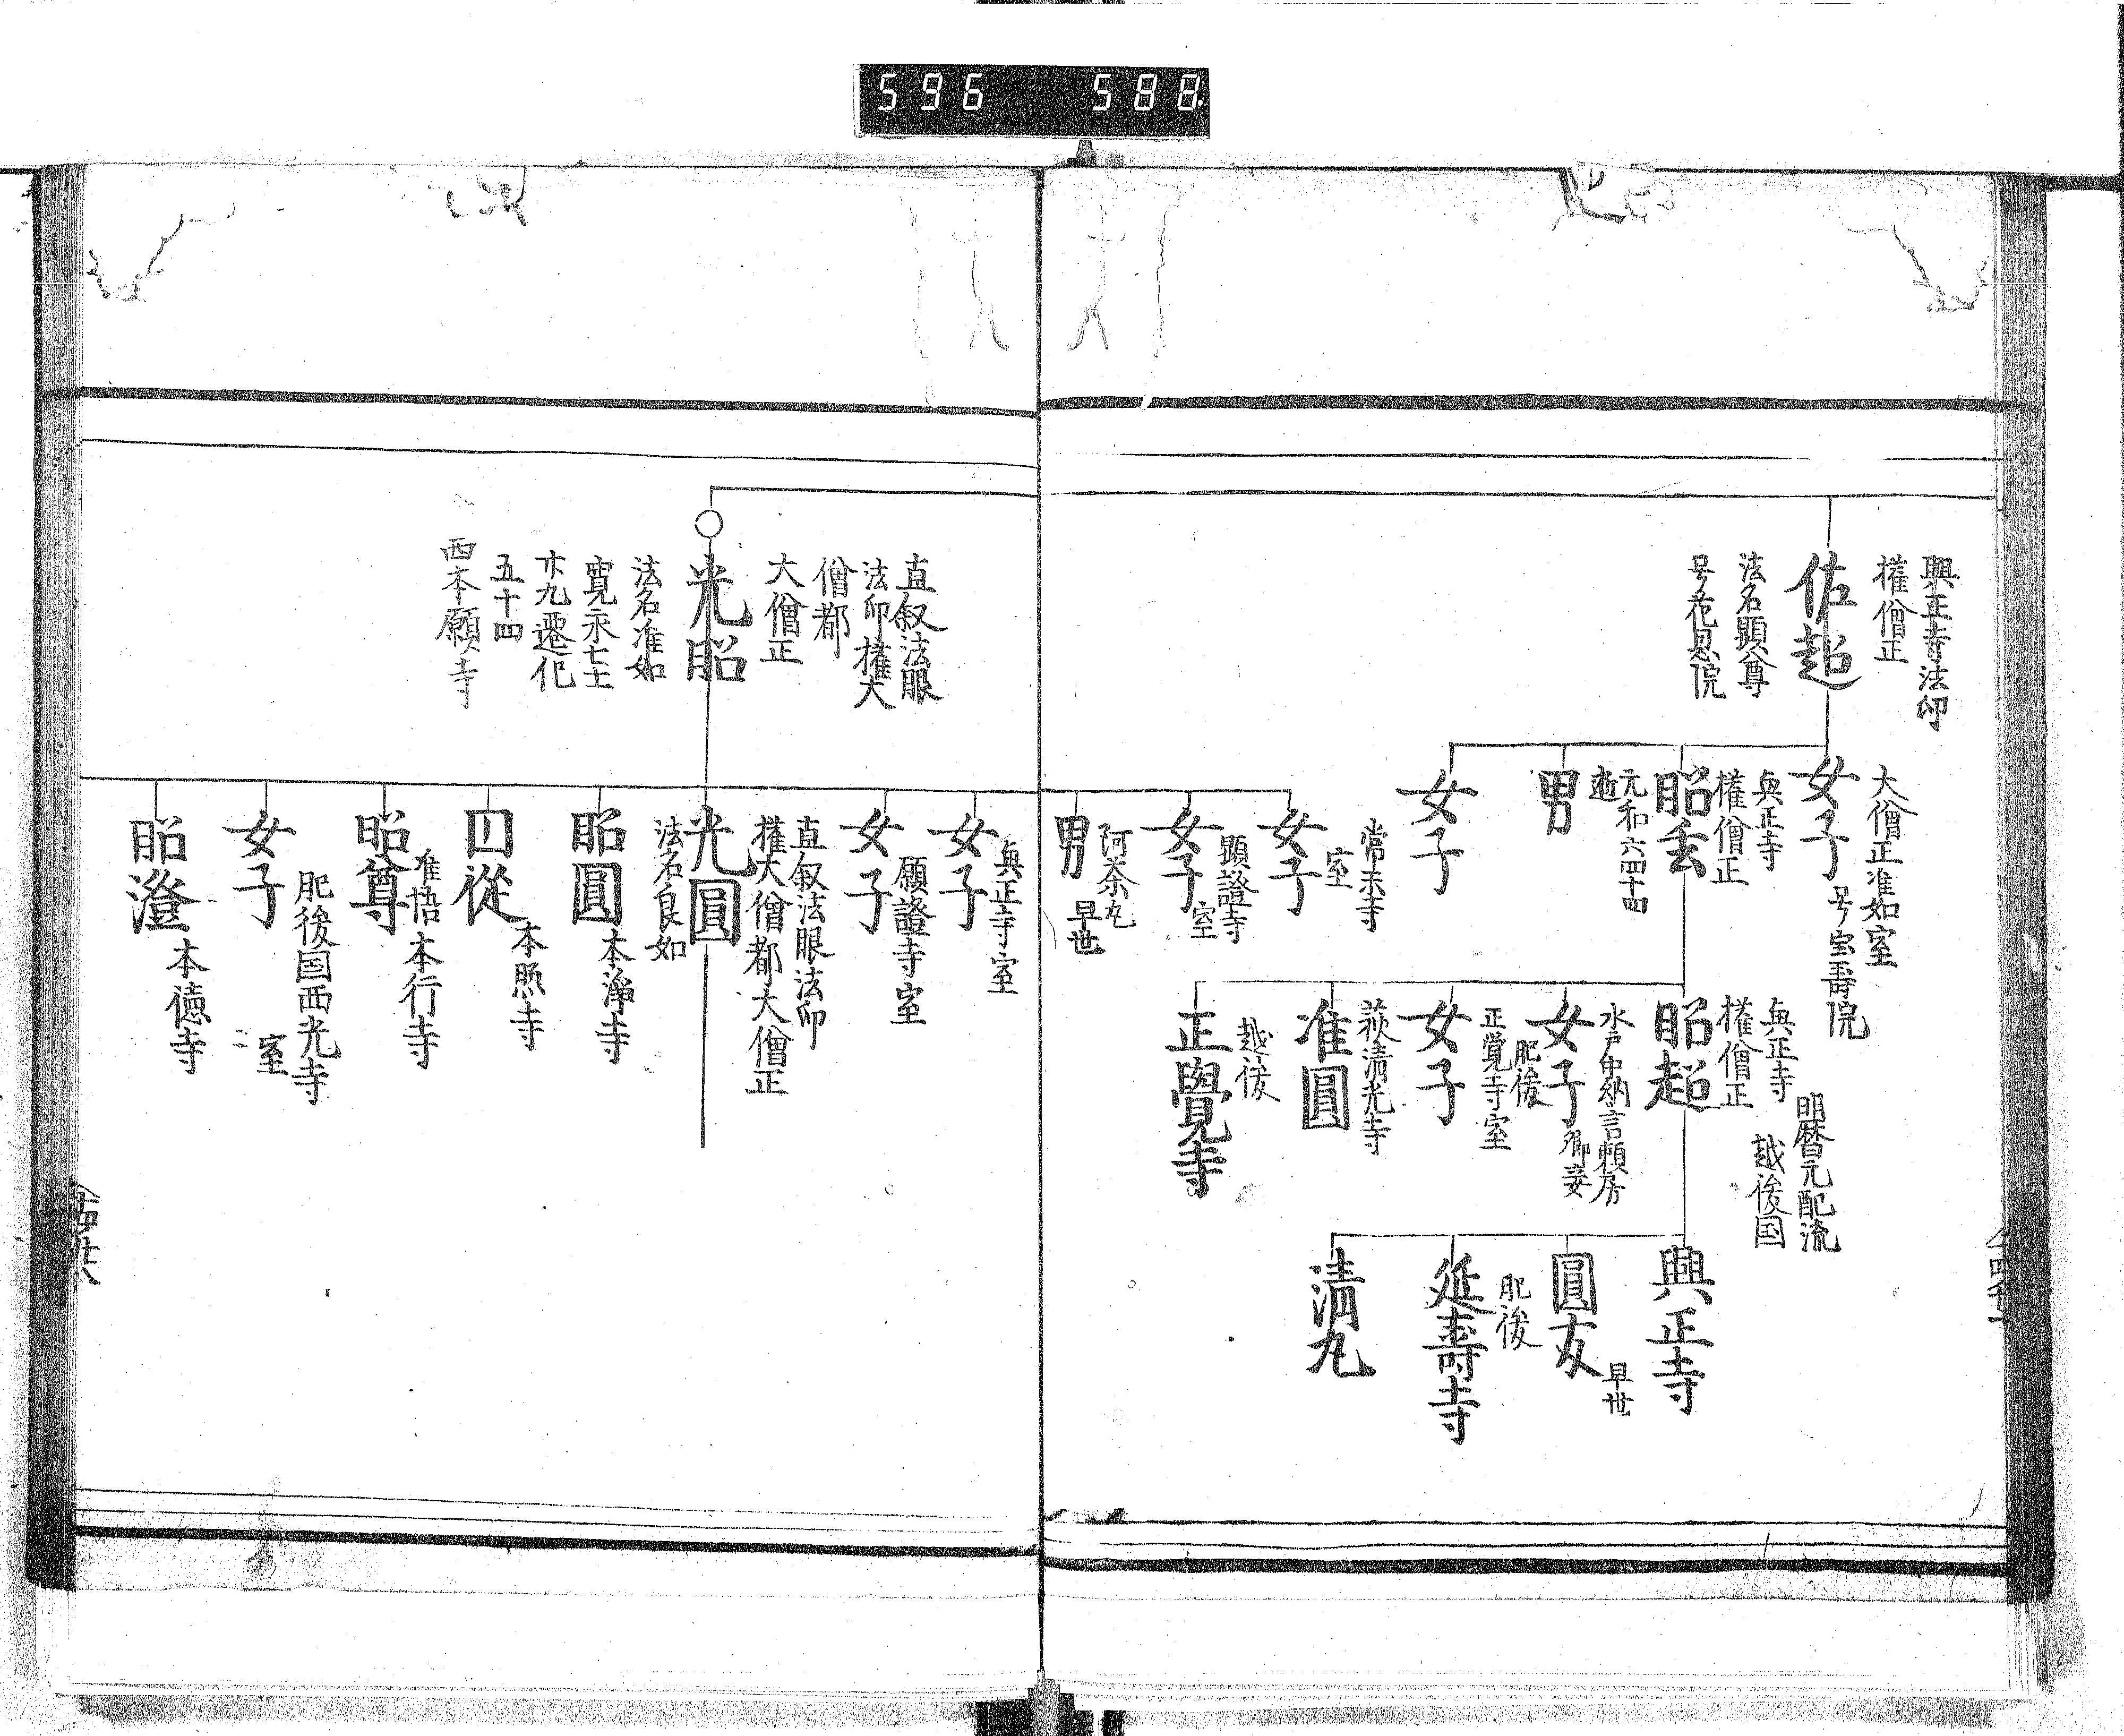 596 588
興正寺法印
権僧正
佐超
法名顕尊
号花恩院
大僧正准如室
女子
号宝寿院
興正寺
権僧正
昭玄
元和六四十四
逝
男
女子
明暦元配流
越後国
興正寺
権僧正
昭超
水戸中納言頼房
卿妾
女子
肥後
正覚寺室
女子
萩清光寺
准圓
越後
正覺寺
興正寺
早世
圓友
肥後
延壽寺
清丸
常楽寺
室
女子
顕證寺
室
女子
阿茶丸
早世
男
直叙法眼
法印権大
僧都
大僧正
光昭
法名准如
寛永七十一
卅九遷化
五十四
西本願寺
興正寺室
女子
願證寺室
女子
直叙法眼法印
権大僧都大僧正
光圓
法名良如
昭圓
本浄寺
昭從
本照寺
准悟本行寺
昭尊
肥後国西光寺
室
女子
昭澄
本徳寺